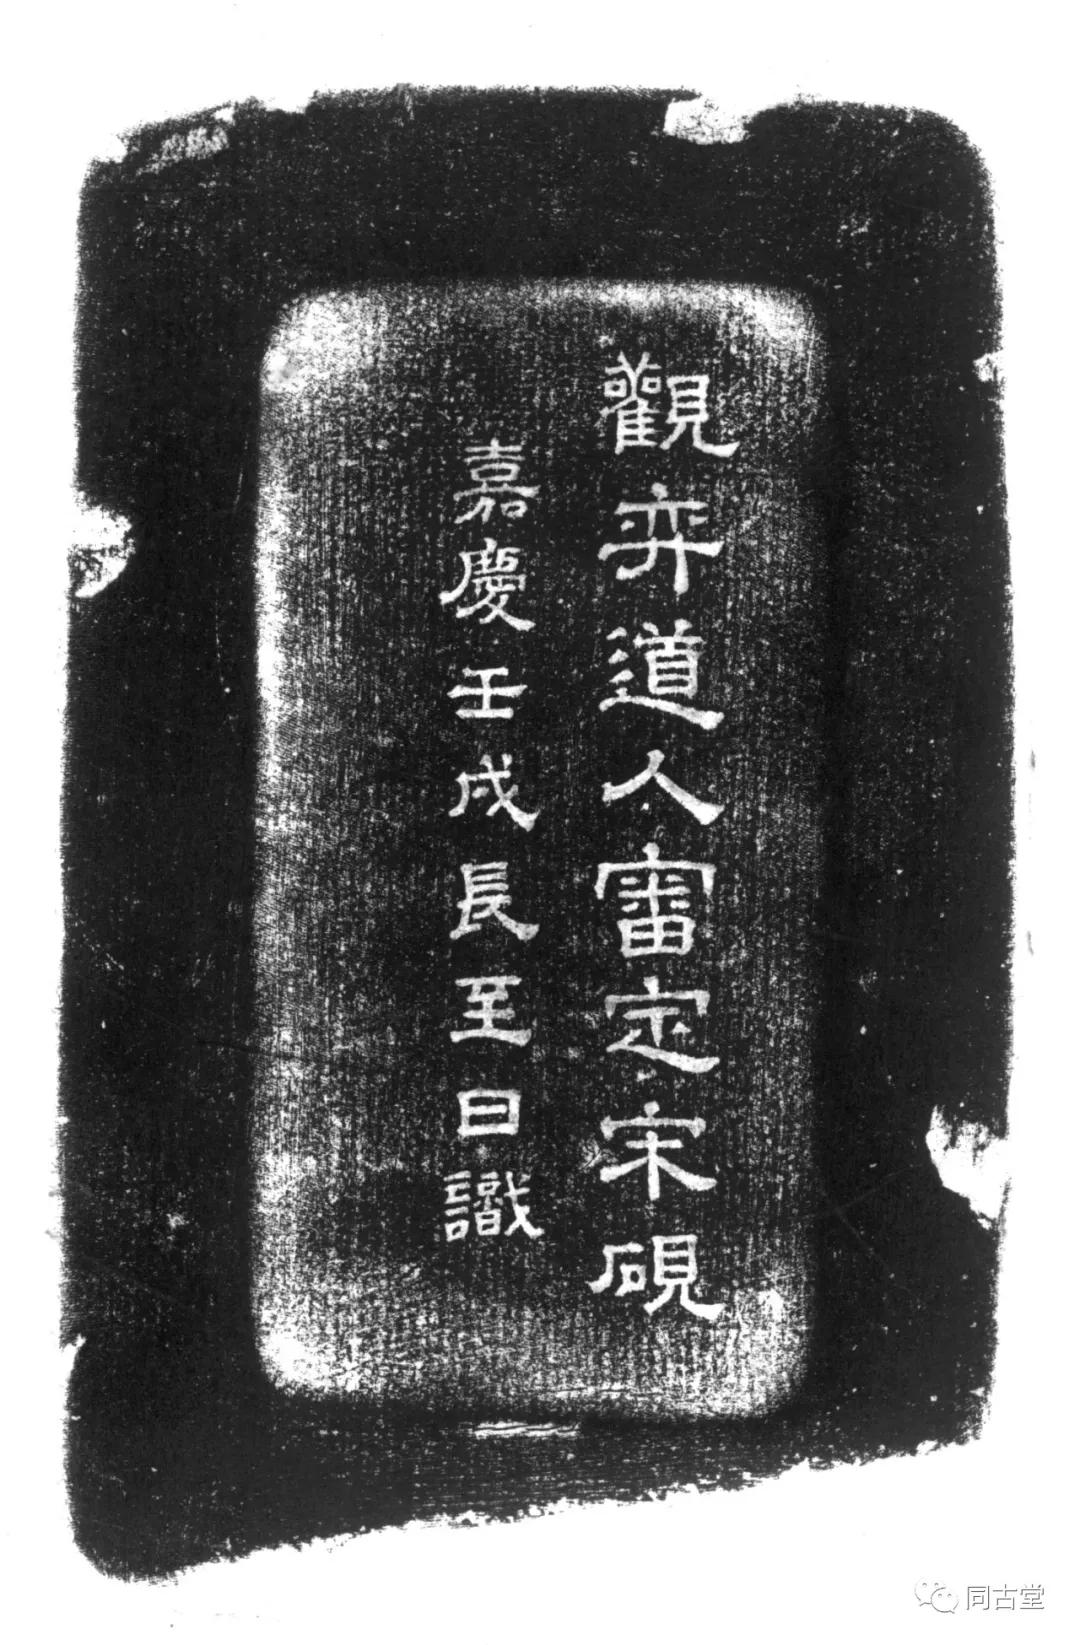 觀弈道人審定宋硯
嘉慶壬戌長至日識
同古堂